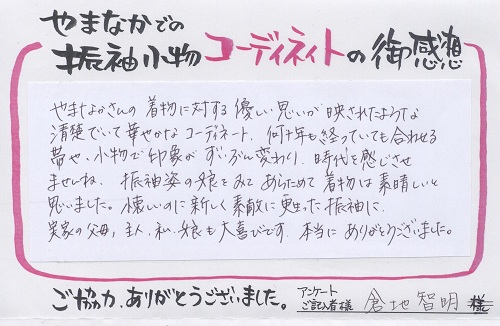 やまなかでの
振袖小物コーディネイトの御感想
やまなかさんの着物に対する優しい思いが映されたような
清楚でいて華やかなコーディネート、何十年も経っていても合わせる
帯や、小物で印象がずいぶん変わり、時代を感じさせ
ませんね。振袖姿の娘をみてあらためて着物は素晴しいと
思いました。懐しいのに新しく素敵に更生った振袖に、
実家の父母、主人、私、娘も大喜びです。本当にありがとうございました。
ご協力、ありがとうございました。
アンケート
ご記入者様 倉地智明 様